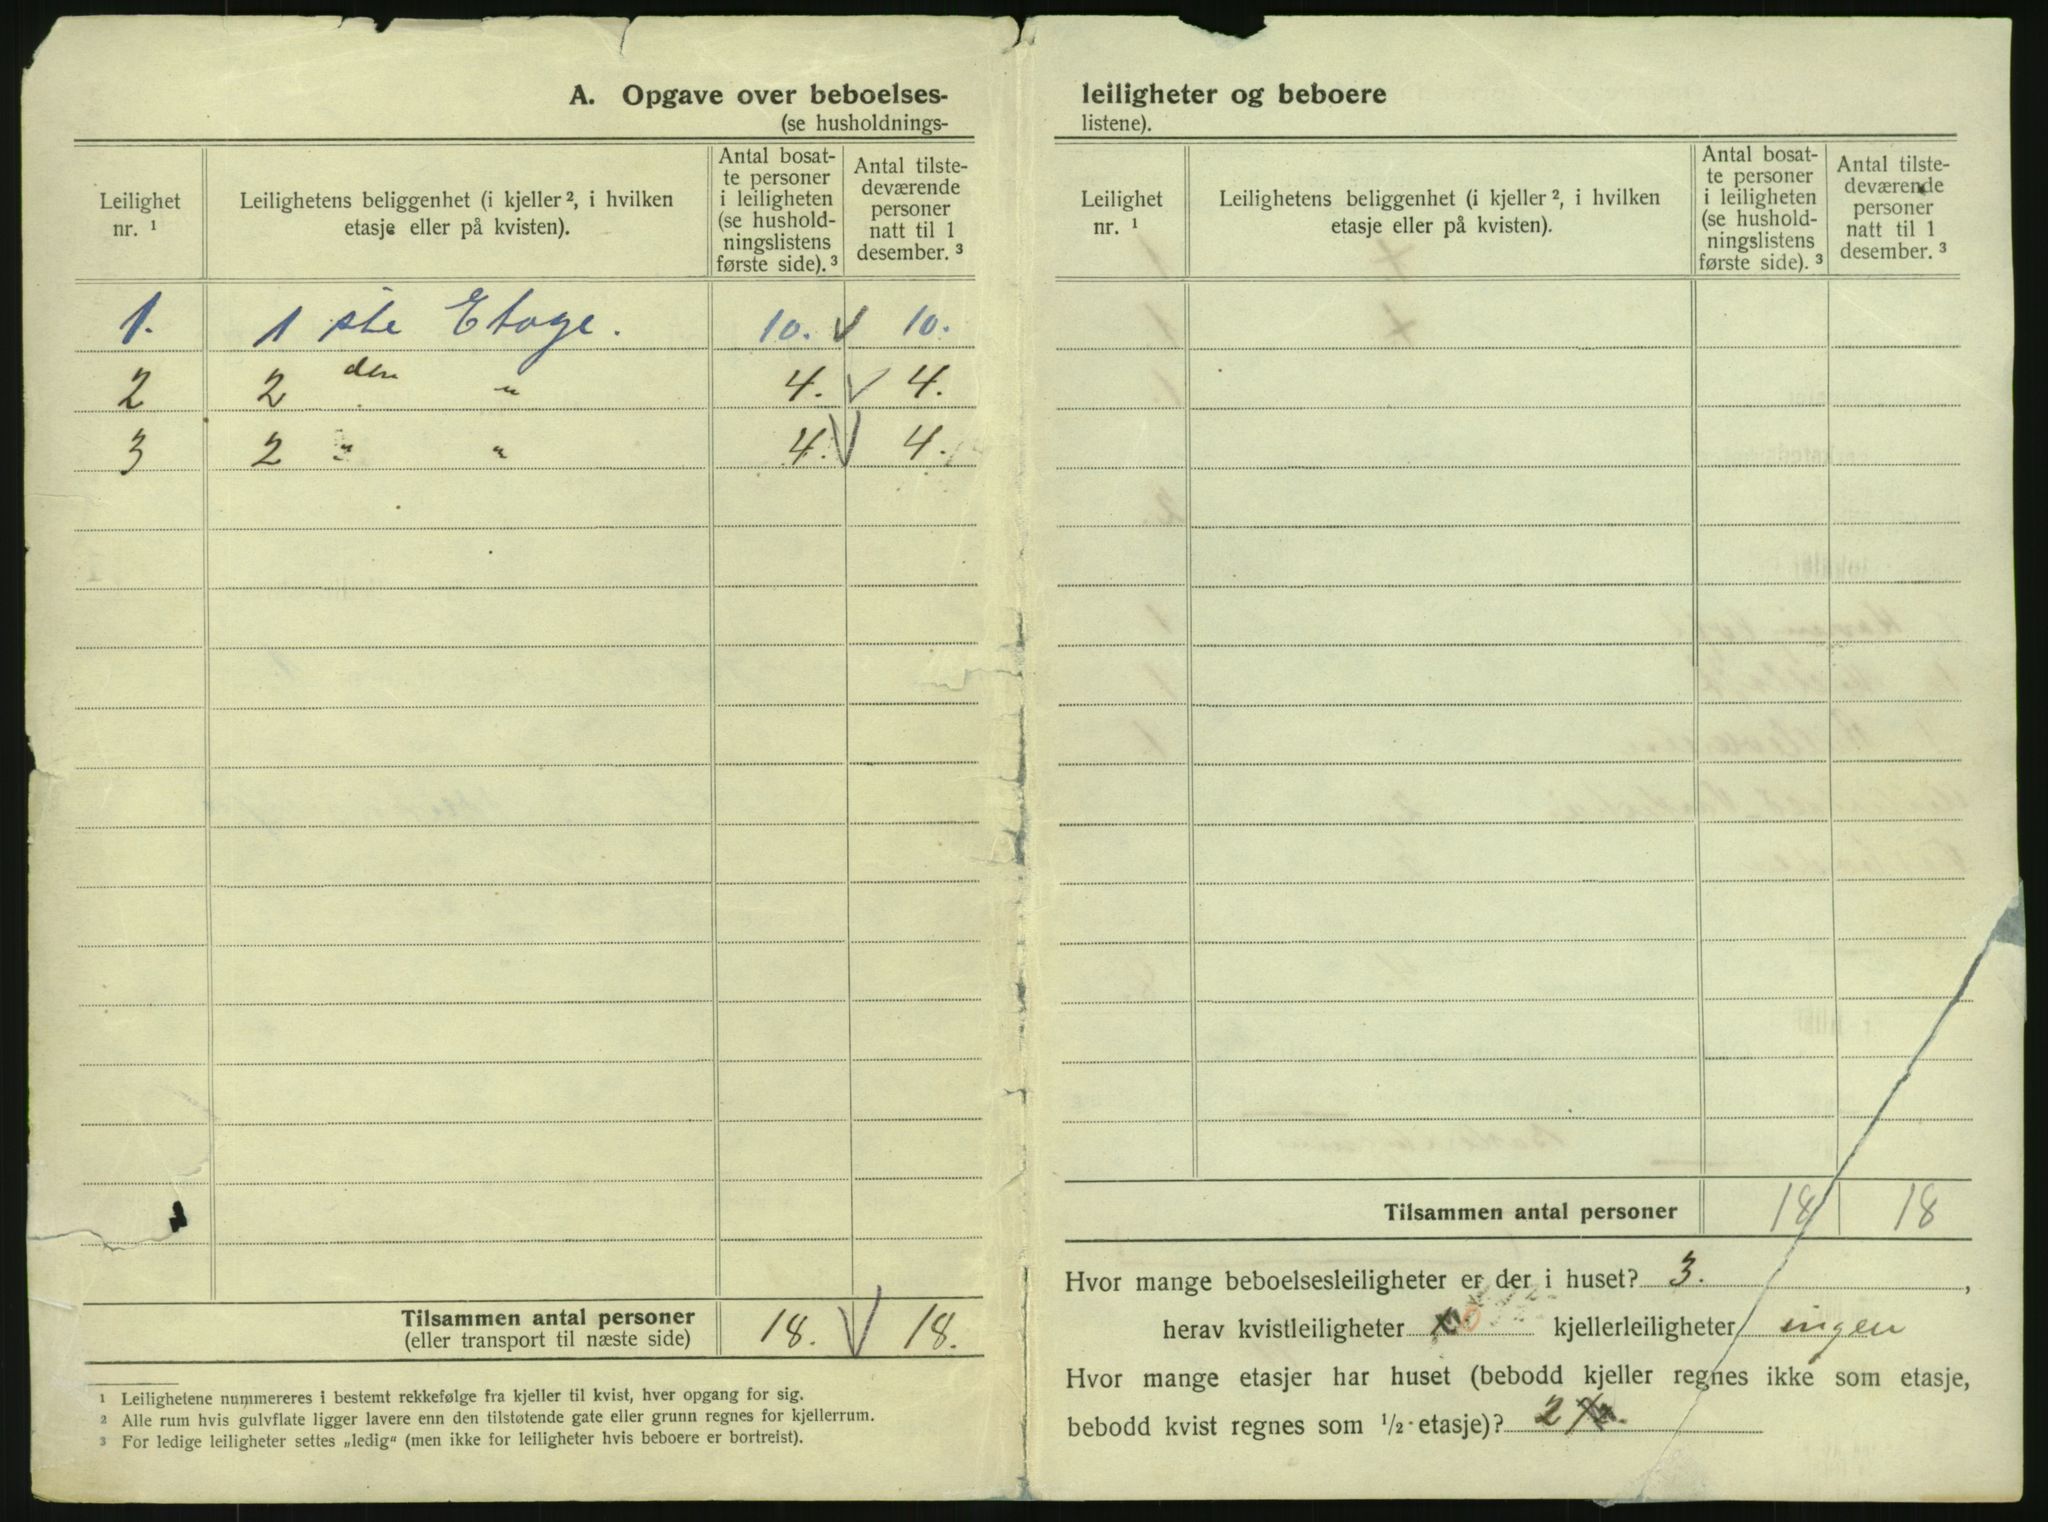 A. Opgave over beboelses-
(se husholdnings-
Leilighet nr. ¹
Leilighetens beliggenhet (i kjeller ², i hvilken etasje eller på kvisten).
Antal bosat-
te personer
i leiligheten
(se hushold-
ningslistens
første side). ³
Antal tilste-
deværende
personer
natt til 1
desember. ³
1. 1 ste Etage. 10. 10.
2 2 den " 4. 4.
3 2 " " 4. 4.
Tilsammen antal personer 18. 18.
(eller transport til næste side)
¹ Leilighetene nummereres i bestemt rekkefølge fra kjeller til kvist, hver opgang for sig.
² Alle rum hvis gulvflate ligger lavere enn den tilstøtende gate eller grunn regnes for kjellerrum.
³ For ledige leiligheter settes „ledig“ (men ikke for leiligheter hvis beboere er bortreist).
leiligheter og beboere
listene).
Leilighet nr. ¹
Leilighetens beliggenhet (i kjeller ², i hvilken etasje eller på kvisten).
Antal bosat-
te personer
i leiligheten
(se hushold-
ningslistens
første side). ³
Antal tilste-
deværende
personer
natt til 1
desember. ³
Tilsammen antal personer 18 18
Hvor mange beboelsesleiligheter er der i huset? 3. ,
herav kvistleiligheter 0 kjellerleiligheter ingen
Hvor mange etasjer har huset (bebodd kjeller regnes ikke som etasje,
bebodd kvist regnes som 1/2 - etasje)? 2